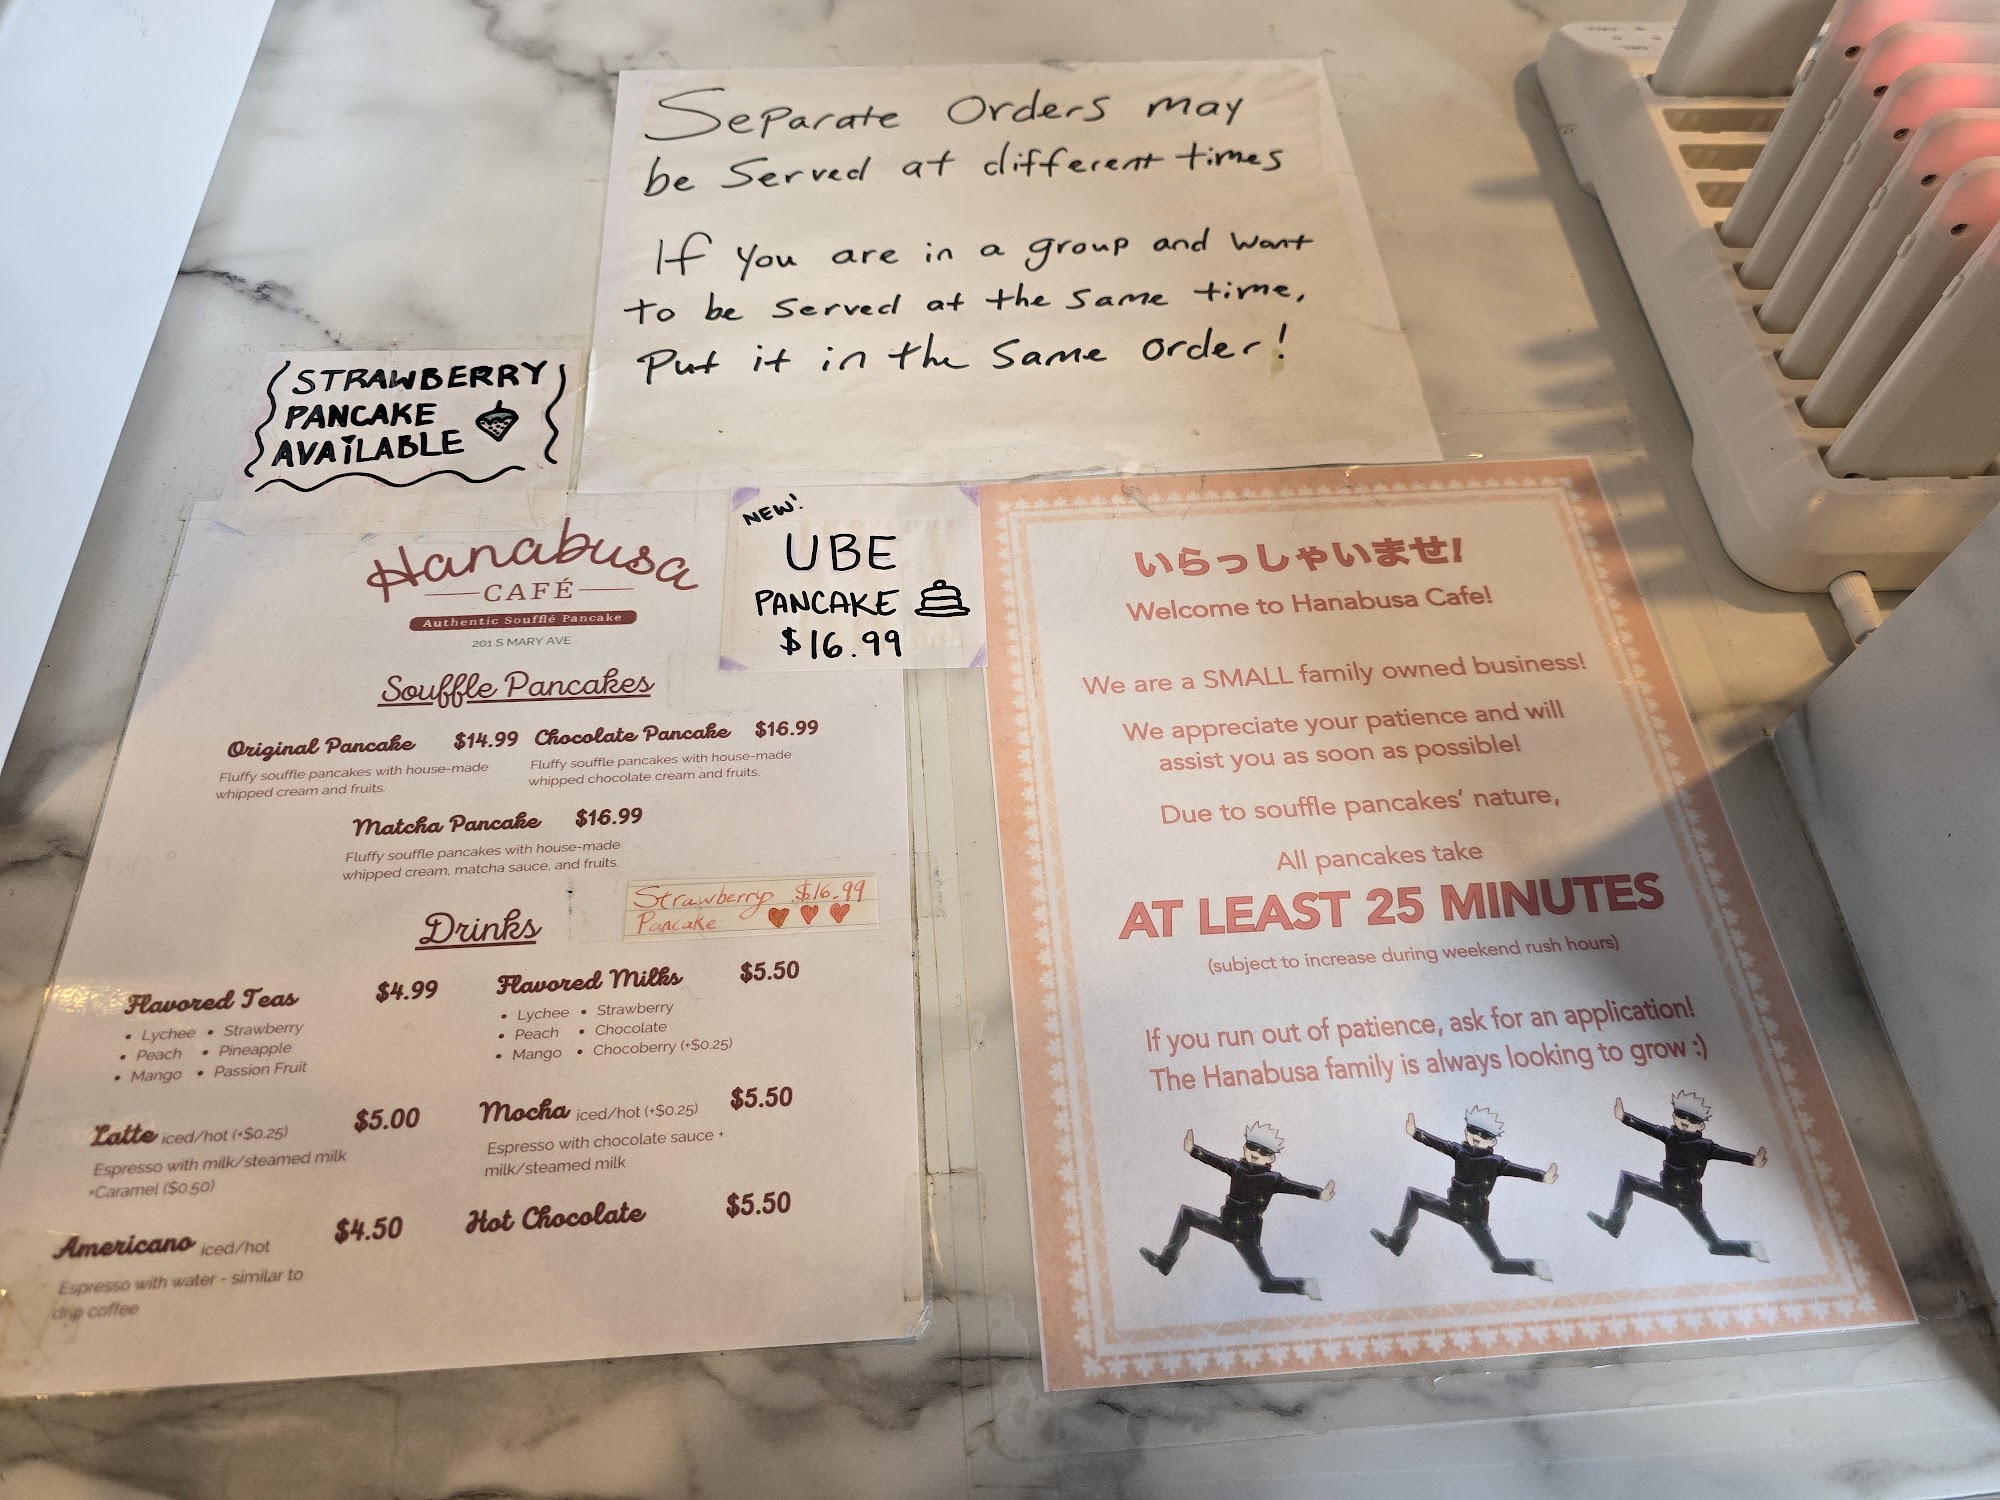 Separate Orders may
be Served at different times
If you are in a group and want
to be served at the same time,
Put it in the same order!
STRAWBERRY
PANCAKE
AVAILABLE
NEW!
UBE
PANCAKE
$16.99
Hanabusa
CAFÉ
Authentic Soufflé Pancake
201 S MARY AVE
Souffle Pancakes
Original Pancake $14.99
Fluffy souffle pancakes with house-made
whipped cream and fruits.
Chocolate Pancake $16.99
Fluffy souffle pancakes with house-made
whipped chocolate cream and fruits.
Matcha Pancake $16.99
Fluffy souffle pancakes with house-made
whipped cream, matcha sauce, and fruits.
Strawberry $16.99
Pancake
Drinks
Flavored Teas $4.99
• Lychee • Strawberry
• Peach • Pineapple
• Mango • Passion Fruit
Flavored Milks $5.50
• Lychee • Strawberry
• Peach • Chocolate
• Mango • Chocoberry (+$0.25)
Latte iced/hot (+$0.25) $5.00
Espresso with milk/steamed milk
+Caramel ($0.50)
Mocha iced/hot (+$0.25) $5.50
Espresso with chocolate sauce +
milk/steamed milk
Americano iced/hot $4.50
Espresso with water - similar to
drip coffee
Hot Chocolate $5.50
いらっしゃいませ!
Welcome to Hanabusa Cafe!
We are a SMALL family owned business!
We appreciate your patience and will
assist you as soon as possible!
Due to souffle pancakes' nature,
All pancakes take
AT LEAST 25 MINUTES
(subject to increase during weekend rush hours)
If you run out of patience, ask for an application!
The Hanabusa family is always looking to grow :)